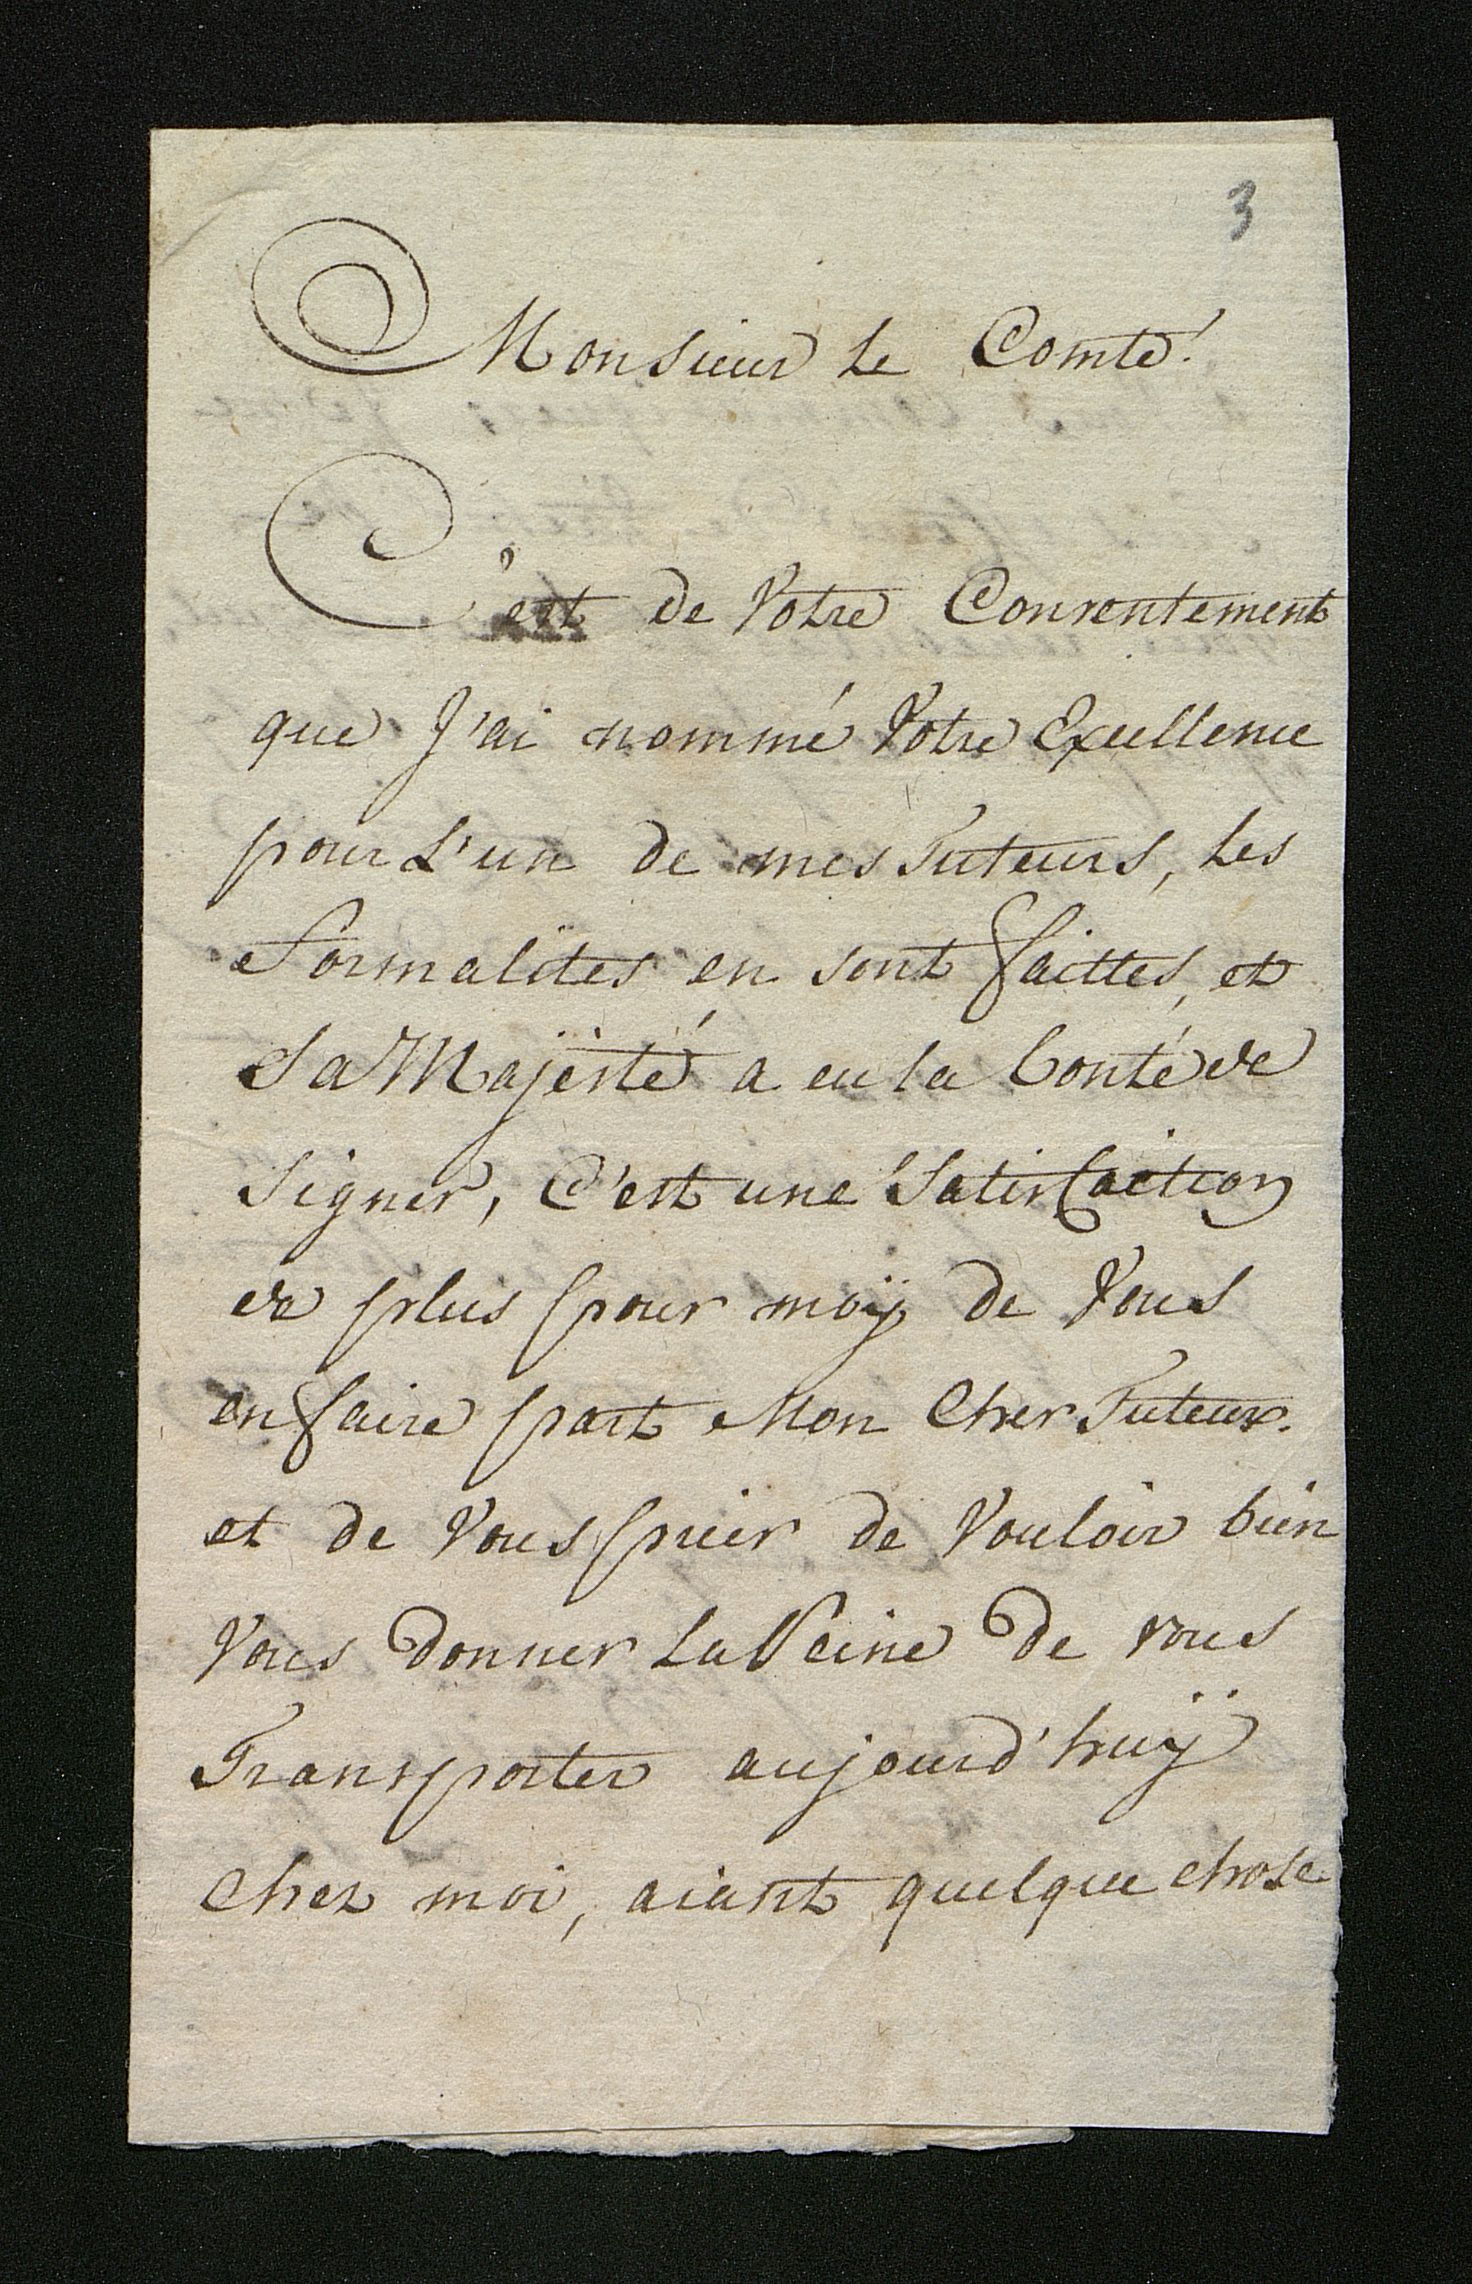 3
Monsieur Le Comte!
C'est de Votre Consentement
que J'ai nommé Votre Excellence
pour L'un de mes Tuteurs, Les
Formalites en sont faittes, et
Sa Majèsté a eu la bonté de
Signer, C'est une Satisfaction
de plus pour moÿ de Vous
en faire part Mon Cher Tuteur.
et de Vous prier de Vouloir bien
Vous donner La Peine de vous
Transporter aujourd'huÿ
Chez moi, aiant quelque chose